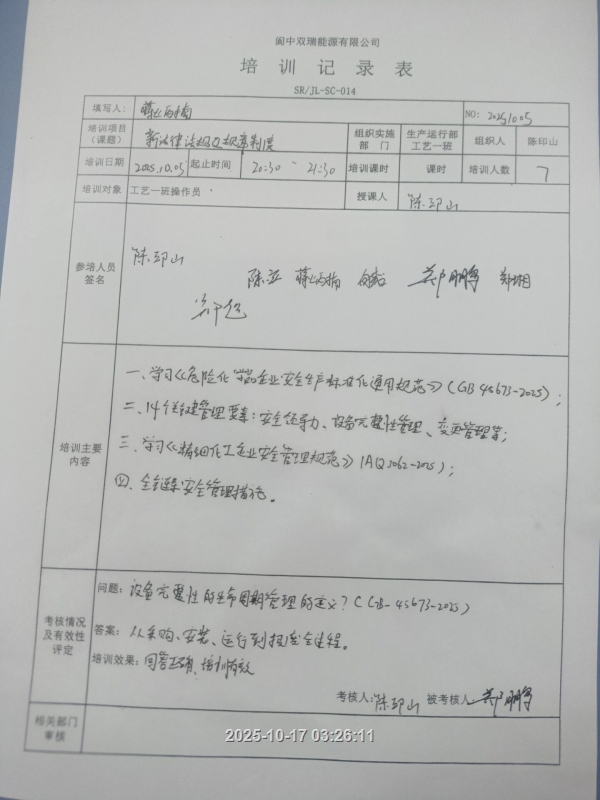 阆中双瑞能源有限公司
培训记录表
SR/JL-SC-014
填写人： NO: 20251005
培训项目（课题） 新法律法规及规章制度 组织实施部门 生产运行部工艺一班 组织人 陈印山
培训日期 2025.10.05 起止时间 20:30 - 21:30 培训课时 课时 培训人数 7
培训对象 工艺一班操作员 授课人 陈印山
参培人员签名
陈印山
陈立 郑鹏
培训主要内容
一、学习《危险化学品企业安全生产标准化通用规范》(GB 45673-2025)；
二、14个关键管理要素：安全领导力、设备完整性管理、变更管理等；
三、学习《精细化工企业安全管理规范》(AQ 3062-2025)；
四、全链条安全管理措施。
考核情况及有效性评定
问题：设备完整性的生命周期管理的定义？(GB-45673-2025)
答案：从采购、安装、运行到报废全过程。
培训效果：回答正确，培训有效
考核人：陈印山 被考核人 郑鹏
相关部门审核
2025-10-17 03:26:11